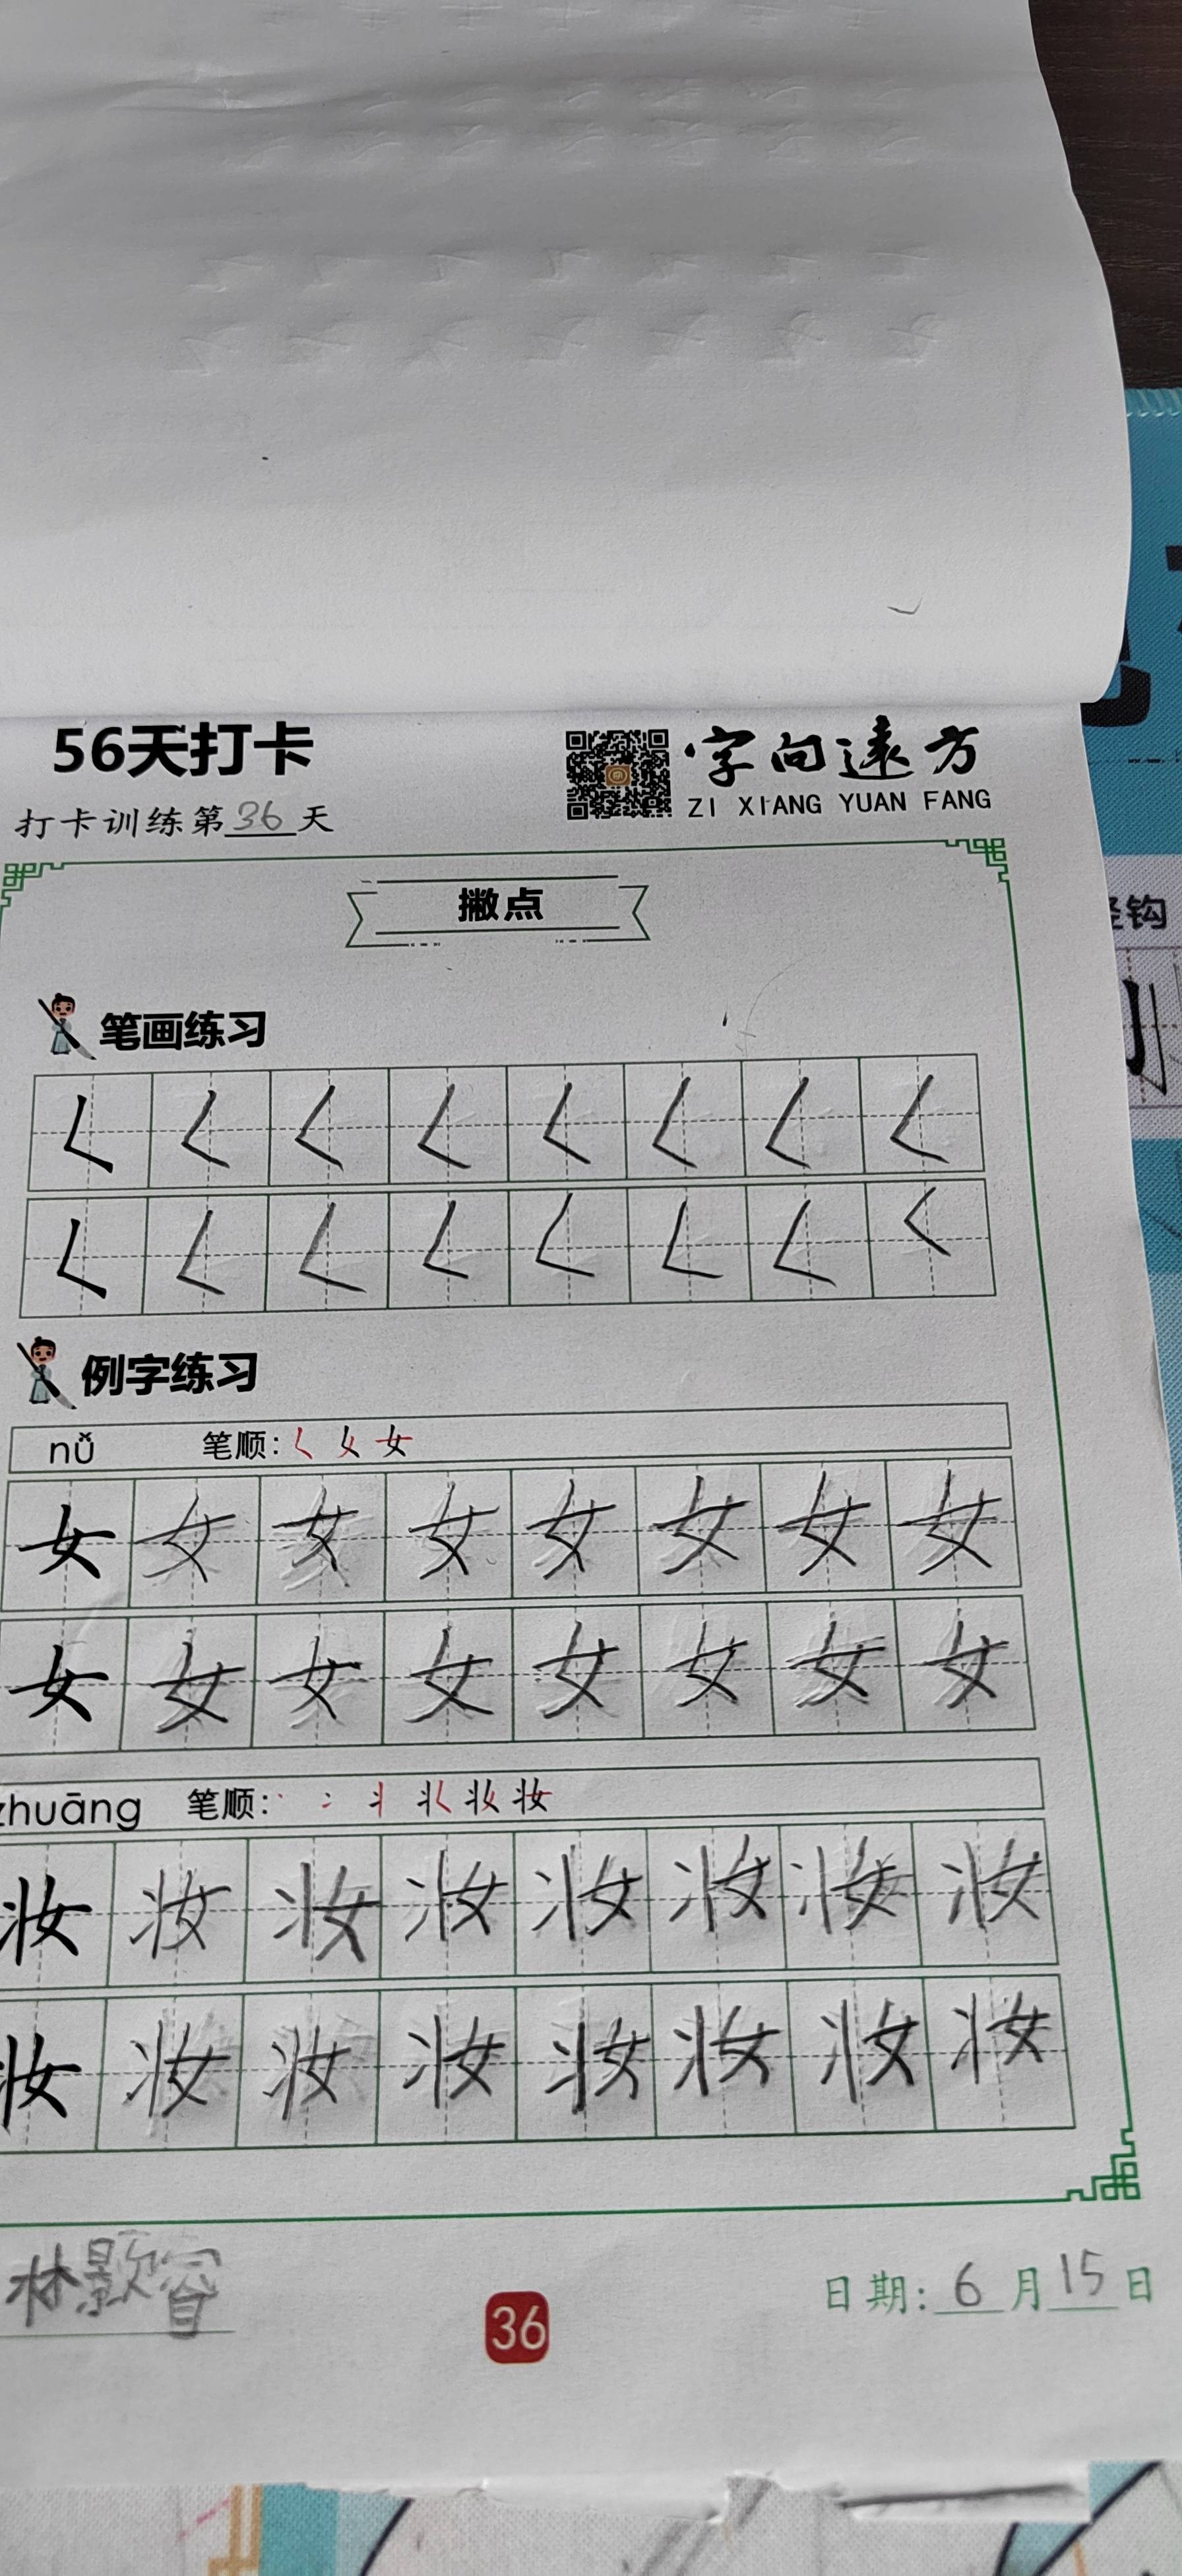 56天打卡
字向遠方
ZI XIANG YUAN FANG
打卡训练第36天
撇点
笔画练习
𡿨 𡿨 𡿨 𡿨 𡿨 𡿨 𡿨 𡿨
𡿨 𡿨 𡿨 𡿨 𡿨 𡿨 𡿨 𡿨
例字练习
nǚ 笔顺: 𡿨 女
女 女 女 女 女 女 女 女
女 女 女 女 女 女 女 女
zhuāng 笔顺: 妆
妆 妆 妆 妆 妆 妆 妆 妆
妆 妆 妆 妆 妆 妆 妆 妆
林歆睿
36
日期: 6月15日